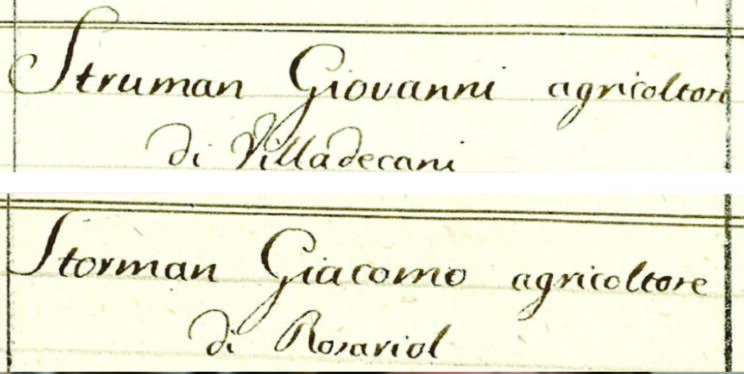 Struman Giovanni agricoltore
di Villadecani
Storman Giacomo agricoltore
di Rosariol